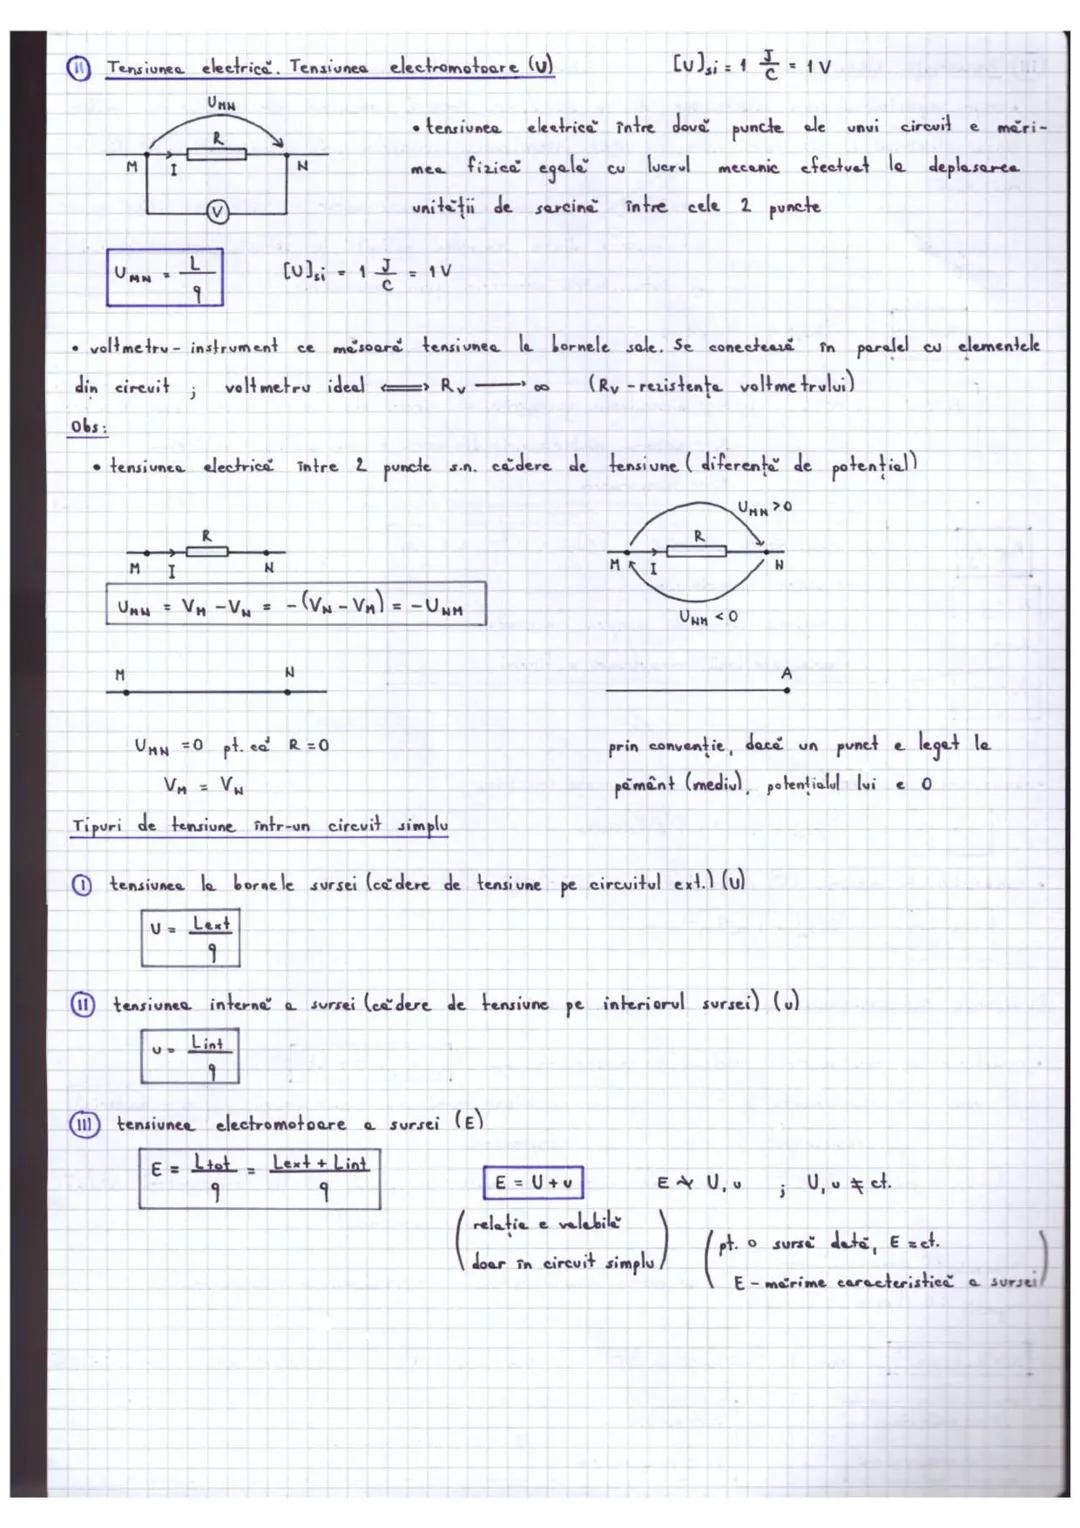 II Tensiunea electrică. Tensiunea electromotoare (U) [U]si = 1 J/C = 1V
UMN
R
M I N
V
• tensiunea electrică între două puncte ale unui circuit e mări-
mea fizică egală cu lucrul mecanic efectuat la deplasarea
unității de sarcină între cele 2 puncte
UMN = L/q [U]si = 1 J/C = 1V
• voltmetru - instrument ce măsoară tensiunea la bornele sale. Se conectează în paralel cu elementele
din circuit ; voltmetru ideal <=> Rv → ∞ (Rv - rezistența voltmetrului)
Obs:
• tensiunea electrică între 2 puncte s.n. cădere de tensiune (diferență de potențial)
R
M I N
UMN = VM - VN = -(VN - VM) = -UNM
UMN > 0
R
M I N
UNM < 0
M N
UMN = 0 pt. că R = 0
VM = VN
A
prin convenție, dacă un punct e legat la
pământ (mediu), potențialul lui e 0
Tipuri de tensiune într-un circuit simplu
I tensiunea la bornele sursei (cădere de tensiune pe circuitul ext.) (U)
U = Lext/q
II tensiunea internă a sursei (cădere de tensiune pe interiorul sursei) (u)
u = Lint/q
III tensiunea electromotoare a sursei (E)
E = Ltot/q = Lext + Lint/q
E = U + u
(relația e valabilă
doar în circuit simplu)
U, u ≠ ct.
(pt. o sursă dată, E = ct.
E - mărime caracteristică a sursei)